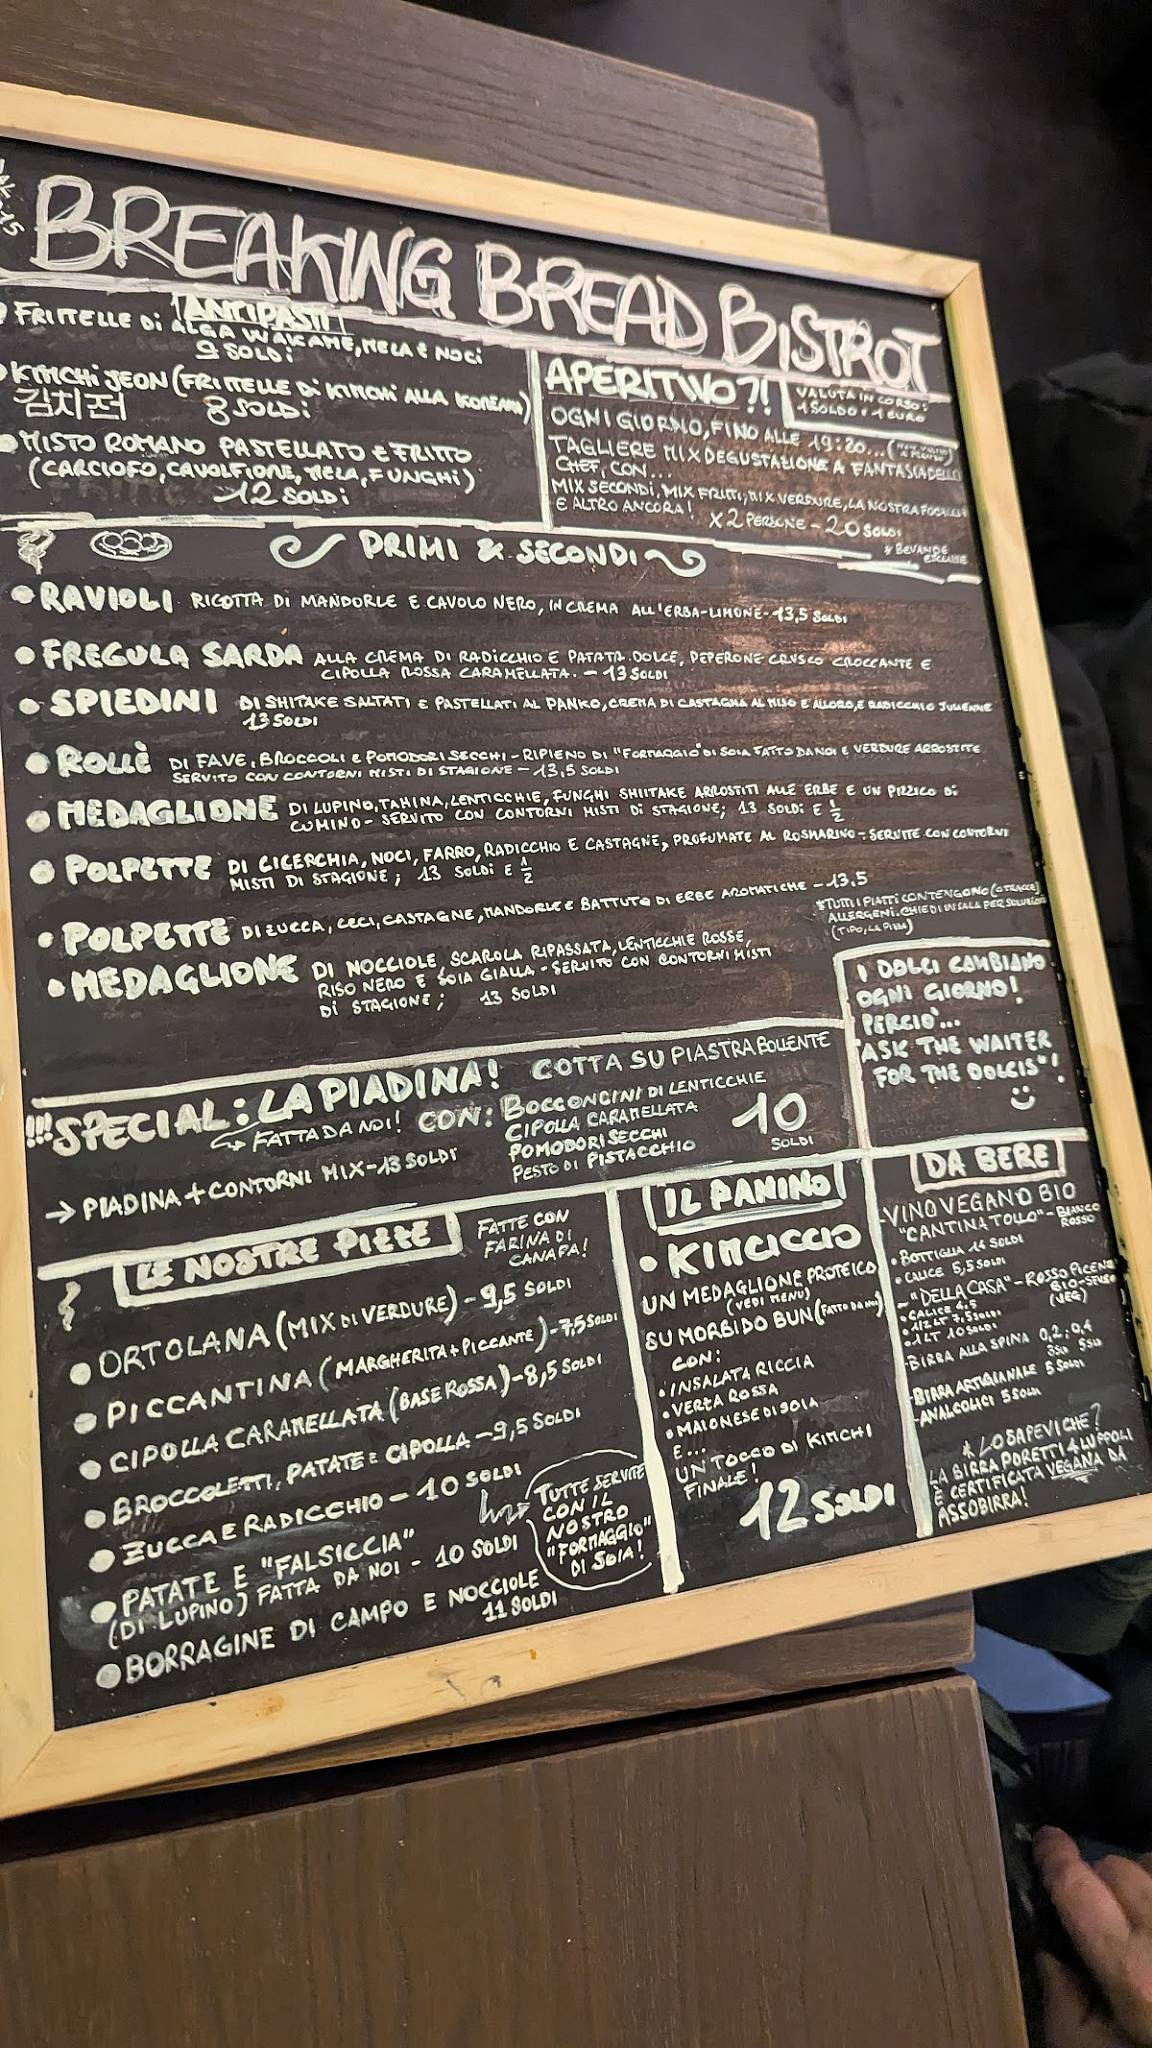 BREAKING BREAD BISTROT
ANTIPASTI
FRITTELLE DI ALGA WAKAME, MELA E NOCI
9 SOLDI
KIMCHI JEON (FRITTELLE DI KIMCHI ALLA KOREANA)
김치전 8 SOLDI
MISTO ROMANO PASTELLATO E FRITTO
(CARCIOFO, CAVOLFIORE, MELA, FUNGHI)
12 SOLDI
APERITIVO?!
VALUTA IN CORSO:
1 SOLDO = 1 EURO
OGNI GIORNO, FINO ALLE 19:20...
TAGLIERE MIX DEGUSTAZIONE A FANTASIA DELLO
CHEF, CON...
MIX SECONDI, MIX FRITTI, MIX VERDURE, LA NOSTRA FOCACCIA
E ALTRO ANCORA!
X2 PERSONE - 20 SOLDI
* BEVANDE
ESCLUSE
PRIMI & SECONDI
• RAVIOLI RICOTTA DI MANDORLE E CAVOLO NERO, IN CREMA ALL'ERBA-LIMONE - 13,5 SOLDI
• FREGULA SARDA ALLA CREMA DI RADICCHIO E PATATA DOLCE, PEPERONE CRUSCO CROCCANTE E
CIPOLLA ROSSA CARAMELLATA. - 13 SOLDI
• SPIEDINI DI SHITAKE SALTATI E PASTELLATI AL PANKO, CREMA DI CASTAGNA AL MISO E ALLORO, E RADICCHIO JULIENNE
13 SOLDI
• ROLLÈ DI FAVE, BROCCOLI E POMODORI SECCHI - RIPIENO DI "FORMAGGIO" DI SOIA FATTO DA NOI E VERDURE ARROSTITE
SERVITO CON CONTORNI MISTI DI STAGIONE - 13,5 SOLDI
• MEDAGLIONE DI LUPINO, TAHINA, LENTICCHIE, FUNGHI SHIITAKE ARROSTITI ALLE ERBE E UN PIZZICO DI
CUMINO - SERVITO CON CONTORNI MISTI DI STAGIONE; 13 SOLDI E 1/2
• POLPETTE DI CICERCHIA, NOCI, FARRO, RADICCHIO E CASTAGNE, PROFUMATE AL ROSMARINO - SERVITE CON CONTORNI
MISTI DI STAGIONE; 13 SOLDI E 1/2
• POLPETTE DI ZUCCA, CECI, CASTAGNE, MANDORLE E BATTUTO DI ERBE AROMATICHE - 13,5
• MEDAGLIONE DI NOCCIOLE, SCAROLA RIPASSATA, LENTICCHIE ROSSE,
RISO NERO E SOIA GIALLA - SERVITO CON CONTORNI MISTI
DI STAGIONE; 13 SOLDI
*TUTTI I PIATTI CONTENGONO (O TRACCE)
ALLERGENI. CHIEDI IN SALA PER SOLUZIONI
(TIPO, LA PIZZA)
I DOLCI CAMBIANO
OGNI GIORNO!
PERCIO'...
"ASK THE WAITER
FOR THE DOLCIS"!
!!!SPECIAL: LA PIADINA! COTTA SU PIASTRA BOLLENTE
FATTA DA NOI! CON: BOCCONCINI DI LENTICCHIE
CIPOLLA CARAMELLATA
POMODORI SECCHI
PESTO DI PISTACCHIO
10
SOLDI
→ PIADINA + CONTORNI MIX - 13 SOLDI
LE NOSTRE PIZZE
FATTE CON
FARINA DI
CANAPA!
• ORTOLANA (MIX DI VERDURE) - 9,5 SOLDI
• PICCANTINA (MARGHERITA + PICCANTE) - 7,5 SOLDI
• CIPOLLA CARAMELLATA (BASE ROSSA) - 8,5 SOLDI
• BROCCOLETTI, PATATE E CIPOLLA - 9,5 SOLDI
• ZUCCA E RADICCHIO - 10 SOLDI
• PATATE E "FALSICCIA"
(DI LUPINO) FATTA DA NOI - 10 SOLDI
• BORRAGINE DI CAMPO E NOCCIOLE
11 SOLDI
TUTTE SERVITE
CON IL
NOSTRO
"FORMAGGIO"
DI SOIA!
IL PANINO
• KIMCICCIO
UN MEDAGLIONE PROTEICO
(VEDI MENU)
SU MORBIDO BUN (FATTO DA NOI)
CON:
• INSALATA RICCIA
• VERZA ROSSA
• MAIONESE DI SOIA
E...
UN TOCCO DI KIMCHI
FINALE!
12 SOLDI
DA BERE
- VINO VEGANO BIO
"CANTINA TOLLO" - BIANCO
ROSSO
• BOTTIGLIA 14 SOLDI
• CALICE 5,5 SOLDI
- "DELLA CASA" - ROSSO PICENO
BIO - SFUSO
(VEG)
• CALICE 4,5
• 1/2 LT 7,5 SOLDI
• 1 LT 10 SOLDI
- BIRRA ALLA SPINA 0,2; 0,4
3SLD 5SLD
- BIRRA ARTIGIANALE 5 SOLDI
- ANALCOLICI 5 SOLDI
* LO SAPEVI CHE?
LA BIRRA PORETTI 4 LUPPOLI
È CERTIFICATA VEGANA DA
ASSOBIRRA!